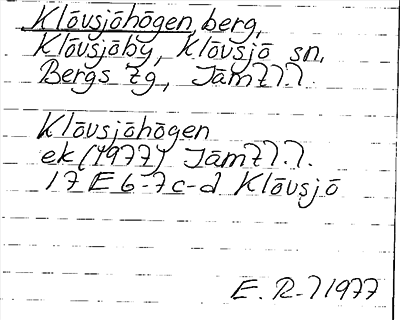 Klövsjöhögen, berg,
Klövsjöby, Klövsjö sn,
Bergs tg, Jämtl.
Klövsjöhögen
ek (1977) Jämtl.
17 E 6-7c-d Klövsjö
E. R-l 1977